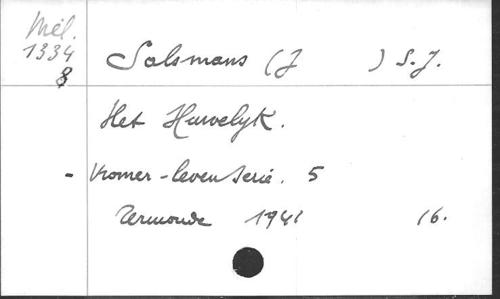 Mél.
1334
8
Salsmans (J ) S.J.
Het Huwelyk.
- Komer-leven serie. 5
Termonde 1941 16.